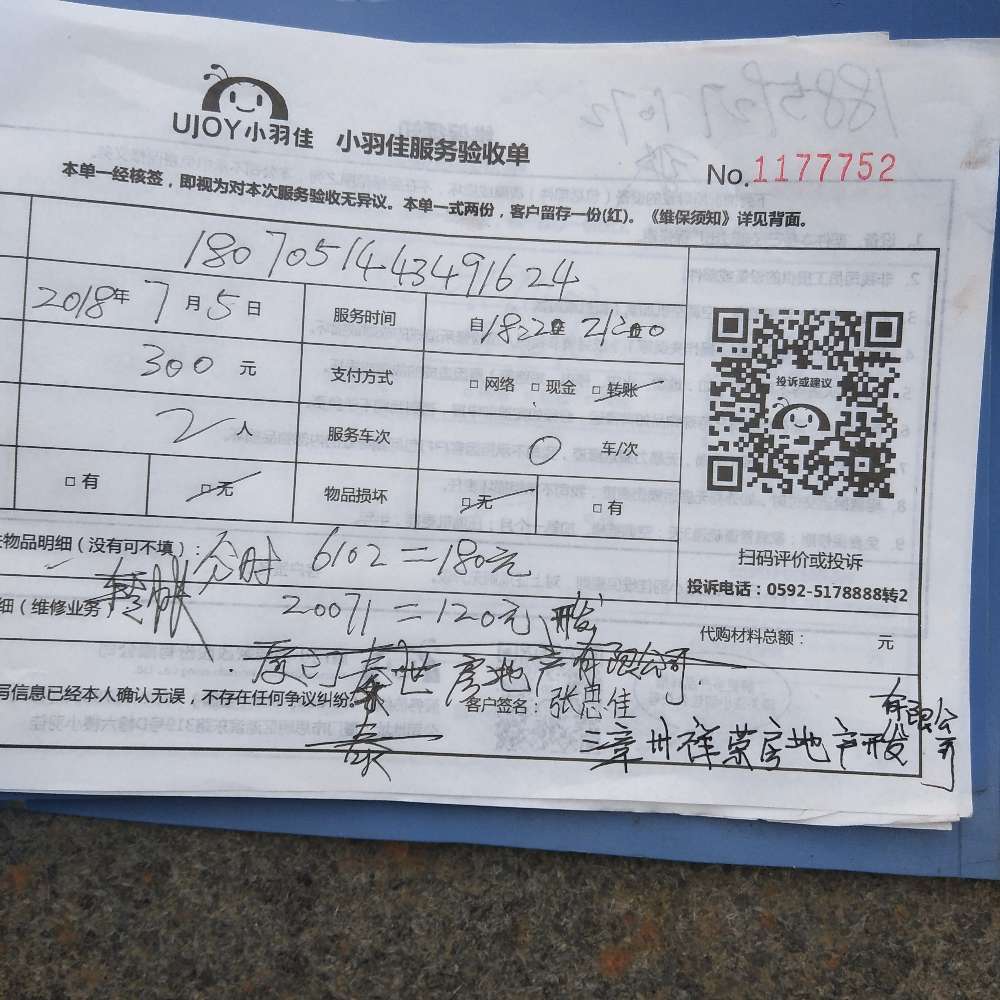 UJOY小羽佳 小羽佳服务验收单
No.1177752
本单一经核签，即视为对本次服务验收无异议。本单一式两份，客户留存一份(红)。《维保须知》详见背面。
18070514443491624
2018年7月5日 服务时间 自18:20至21:00
300元 支付方式 □网络 □现金 □转账
2人 服务车次 0 车/次
□有 □无 物品损坏 □无 □有
投诉或建议
扫码评价或投诉
投诉电话：0592-5178888转2
物品明细（没有可不填）： 6102=180元
细（维修业务 20071=120元 开发
代购材料总额： 元
房地产有限公司
写信息已经本人确认无误，不存在任何争议纠纷。 客户签名：张思佳
泰
漳州祥荣房地产开发
有限公司